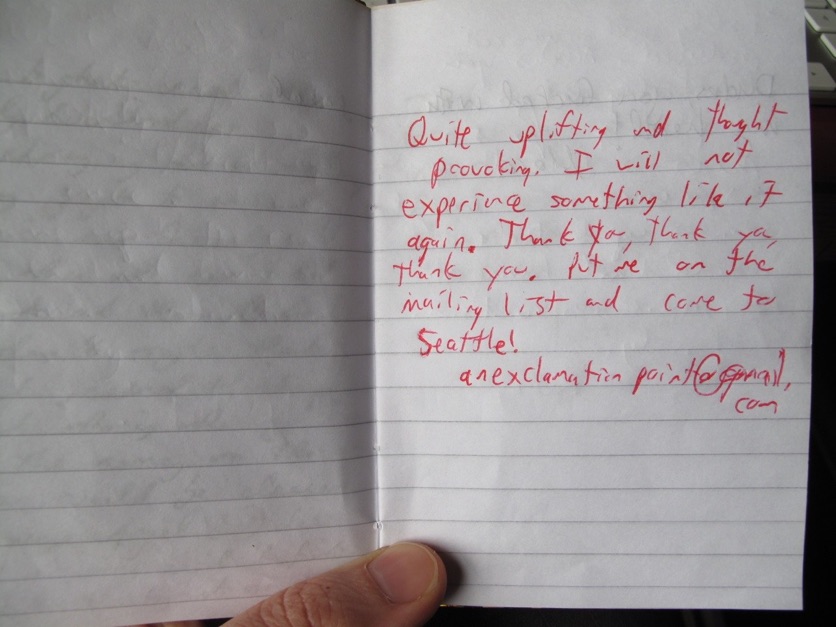 Quite uplifting and thought
provoking. I will not
experince something like it
again. Thank you, thank you,
thank you. Put me on the
mailing list and come to
Seattle!
anexclamation point@gmail.
com